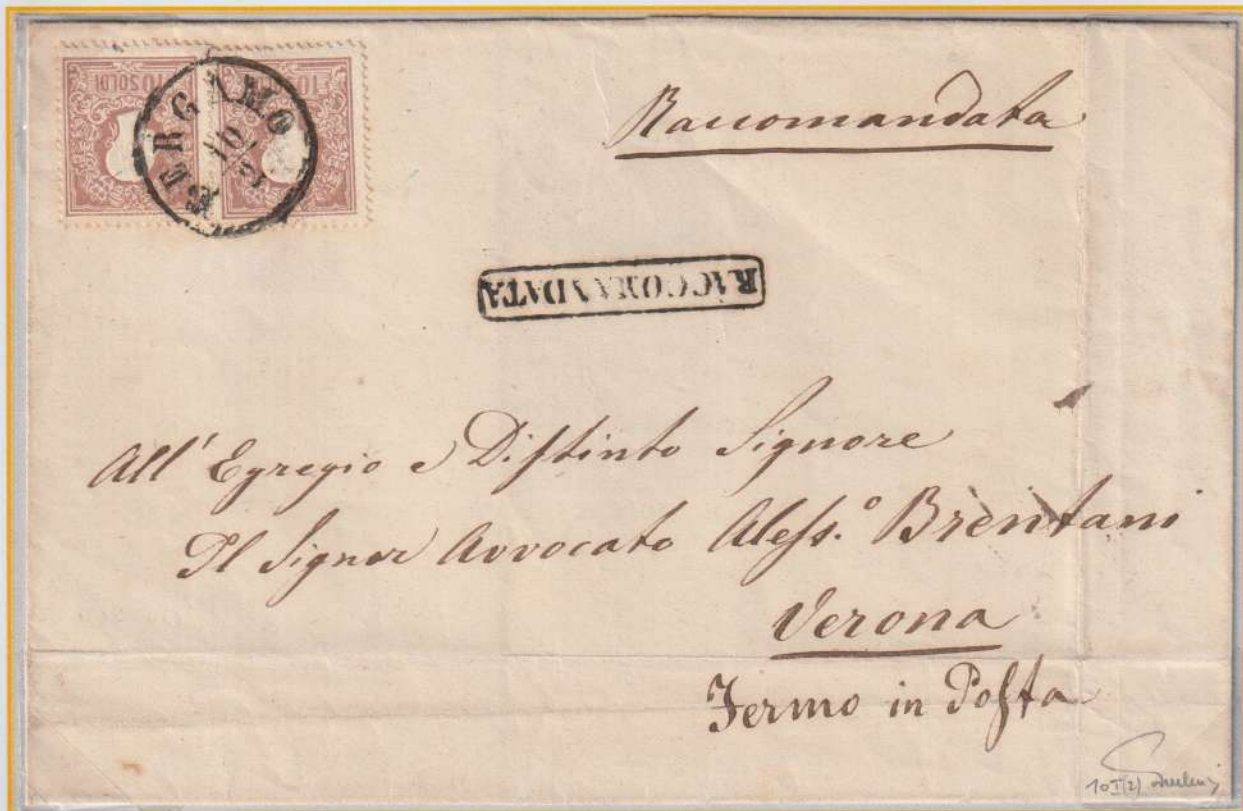 10 SOLDI
10
BERGAMO
10
2
Raccomandata
RACCOMANDATA
All' Egregio e Distinto Signore
Il Signor Avvocato Aless.º Brentani
Verona
Fermo in Posta
10 I (2)